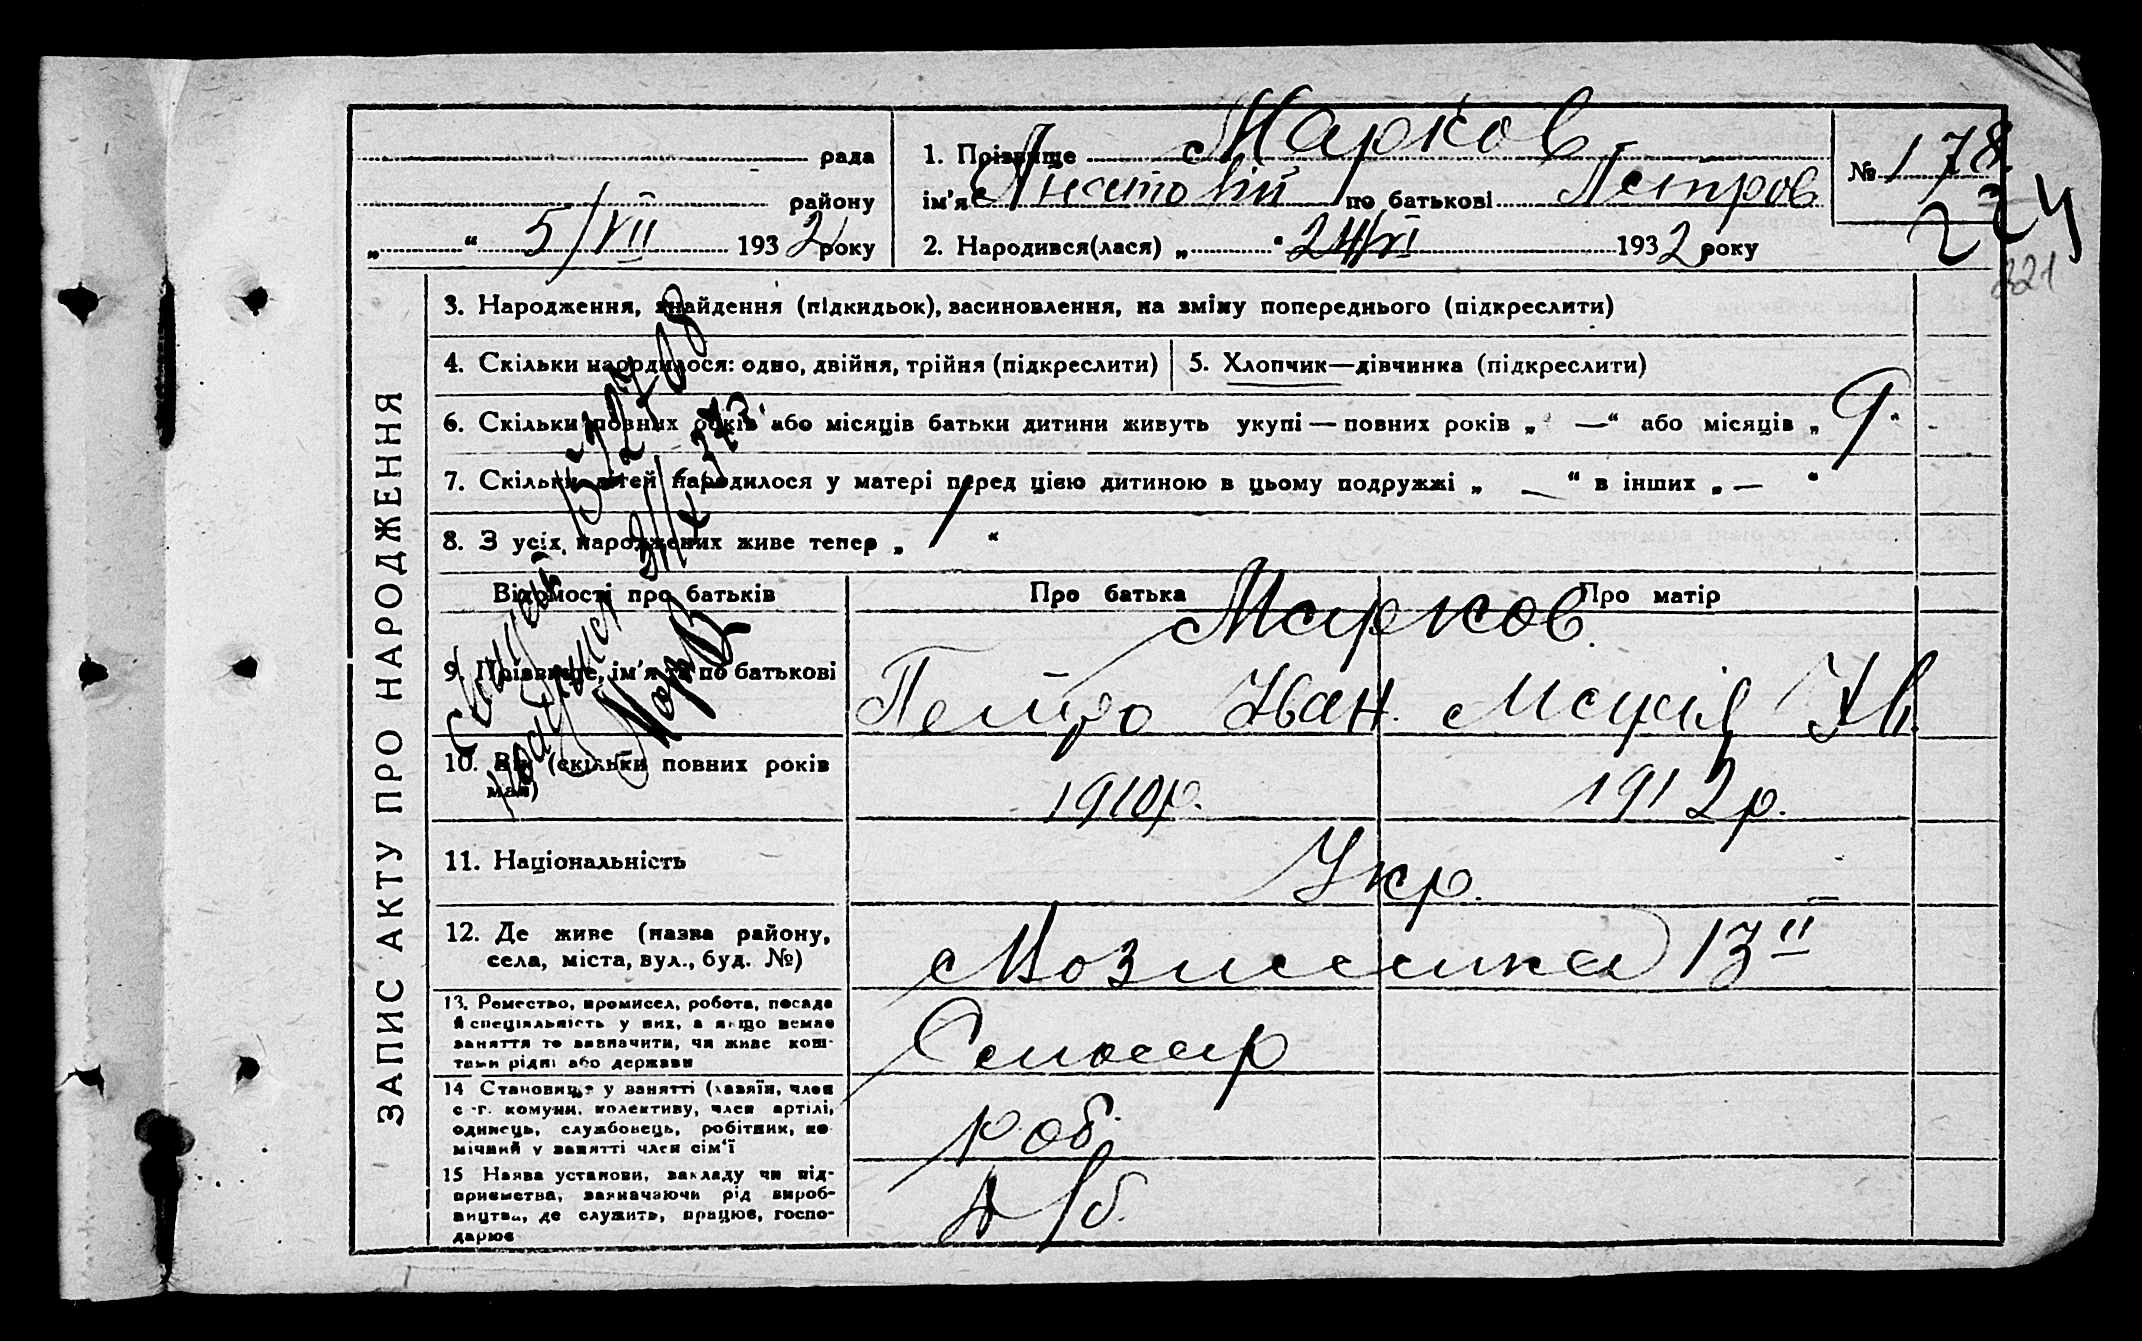 ЗАПИС АКТУ ПРО НАРОДЖЕННЯ
рада
району
„ “ 5/VII 1932 року
1. Прізвище Марков
ім'я по батькові Петров
2. Народився(лася) „ “ 24/VI 1932 року
№ 178.
224
221
3. Народження, знайдення (підкидьок), засиновлення, на зміну попереднього (підкреслити)
4. Скільки народилося: одно, двійня, трійня (підкреслити)
5. Хлопчик—дівчинка (підкреслити)
6. Скільки повних років або місяців батьки дитини живуть укупі — повних років „ —“ або місяців „ 9 “
7. Скільки дітей народилося у матері перед цією дитиною в цьому подружжі „ — “ в інших „ — “
8. З усіх народжених живе тепер „ 1 “
Відомості про батьків
Про батька
Про матір
Марков
9. Прізвище, ім'я та по батькові
Петро Іван.
10. Вік (скільки повних років має)
1910 р.
1912 р.
11. Національність
Укр.
12. Де живе (назва району,
села, міста, вул., буд. №)
13. Ремество, промисел, робота, посада
й спеціяльність у них, а якщо немає
заняття то зазначити, чи живе кош-
тами рідні або держави
Слюсар
14 Становище у занятті (хазяїн, член
с.-г. комуни, колективу, член артілі,
одинець, службовець, робітник, по-
мічний у занятті член сім'ї
роб.
15 Назва установи, закладу чи під-
приємства, зазначаючи рід вироб-
ництва, де служить, працює, госпо-
дарює